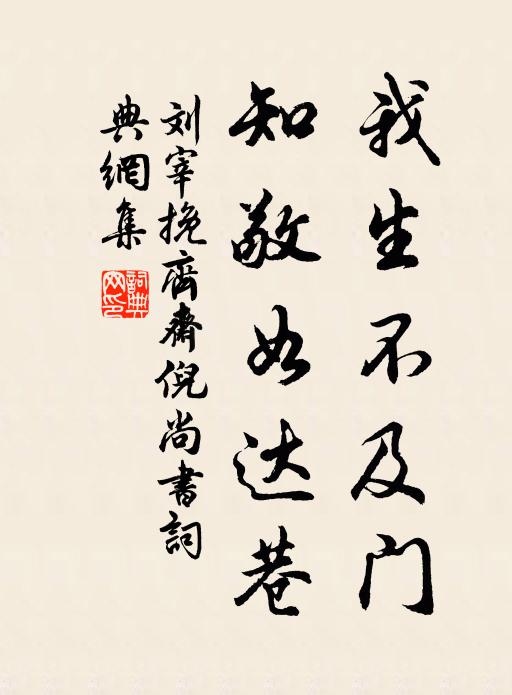 我生不及门
知敬如达巷
刘宰挽齐斋倪尚書詞
典網集
詞典網印